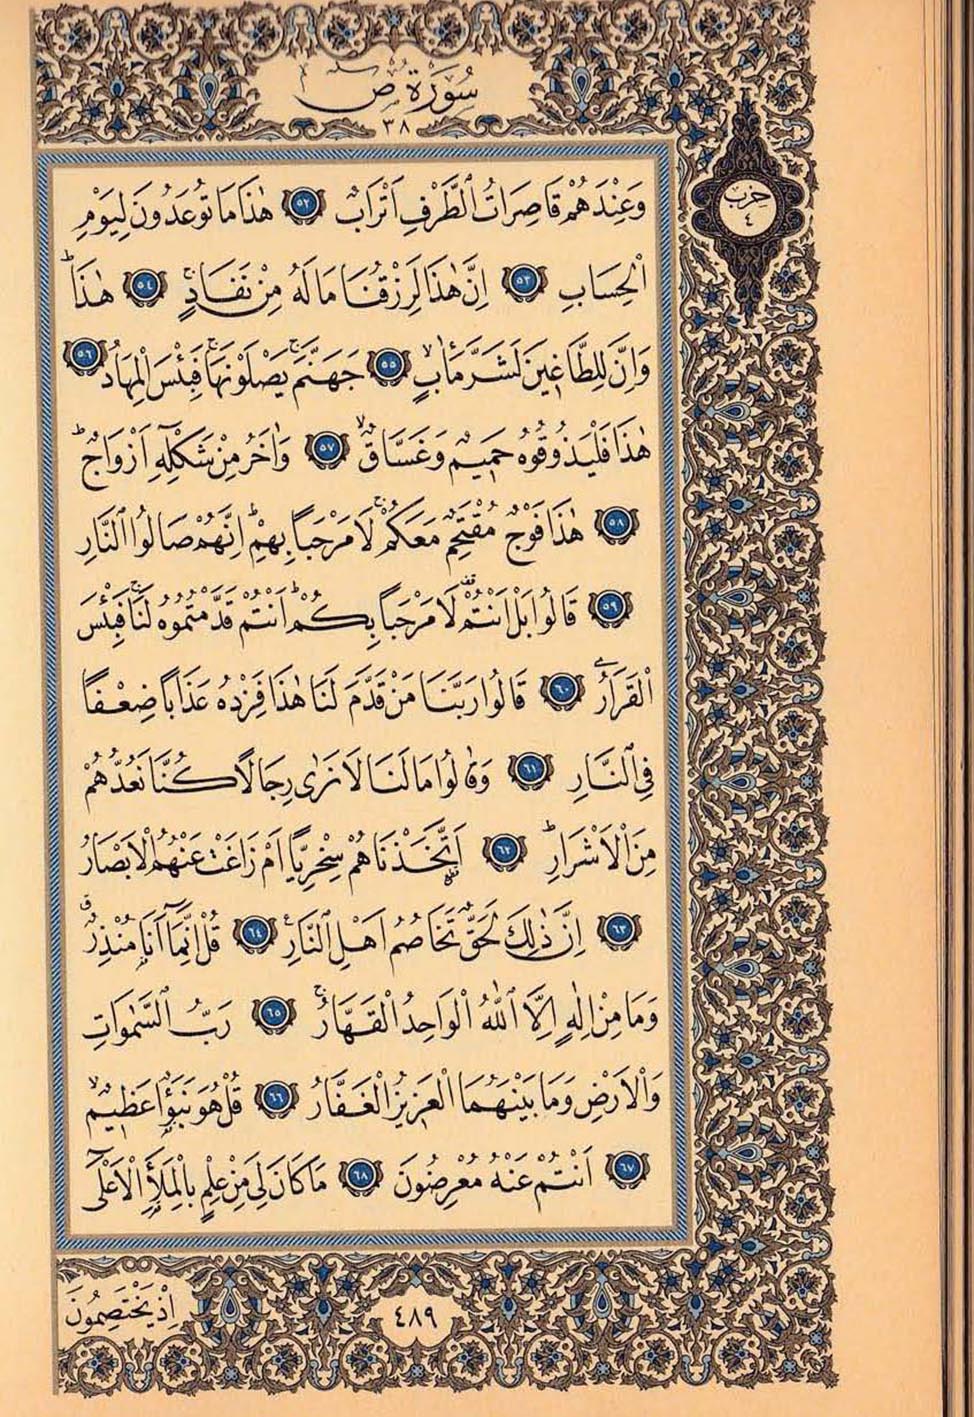 سُورَةُ صۤ
٣٨
حزب
٤
وَعِنْدَهُمْ قَاصِرَاتُ ٱلطَّرْفِ اَتْرَابٌ ٥٢ هٰذَا مَا تُوعَدُونَ لِيَوْمِ
الْحِسَابِ ٥٣ اِنَّ هٰذَا لَرِزْقُنَا مَا لَهُ مِنْ نَفَادٍۚ ٥٤ هٰذَاۜ
وَاِنَّ لِلطَّاغ۪ينَ لَشَرَّ مَاٰبٍۙ ٥٥ جَهَنَّمَۚ يَصْلَوْنَهَاۚ فَبِئْسَ الْمِهَادُ ٥٦
هٰذَا فَلْيَذُوقُوهُ حَم۪يمٌ وَغَسَّاقٌۙ ٥٧ وَاٰخَرُ مِنْ شَكْلِه۪ٓ اَزْوَاجٌۜ
٥٨ هٰذَا فَوْجٌ مُقْتَحِمٌ مَعَكُمْۚ لَا مَرْحَبًا بِهِمْۜ اِنَّهُمْ صَالُوا ٱلنَّارِ
٥٩ قَالُوا بَلْ اَنْتُمْ۠ لَا مَرْحَبًا بِكُمْۜ اَنْتُمْ قَدَّمْتُمُوهُ لَنَاۚ فَبِئْسَ
الْقَرَارُ ٦٠ قَالُوا رَبَّنَا مَنْ قَدَّمَ لَنَا هٰذَا فَزِدْهُ عَذَابًا ضِعْفًا
فِي ٱلنَّارِ ٦١ وَقَالُوا مَا لَنَا لَا نَرٰى رِجَالًا كُنَّا نَعُدُّهُمْ
مِنَ الْاَشْرَارِۜ ٦٢ اَتَّخَذْنَاهُمْ سِخْرِيًّا اَمْ زَاغَتْ عَنْهُمُ الْاَبْصَارُ
٦٣ اِنَّ ذٰلِكَ لَحَقٌّ تَخَاصُمُ اَهْلِ ٱلنَّارِ ٦٤ قُلْ اِنَّمَٓا اَنَا۬ مُنْذِرٌۗ
وَمَا مِنْ اِلٰهٍ اِلَّا ٱللّٰهُ الْوَاحِدُ الْقَهَّارُۚ ٦٥ رَبُّ ٱلسَّمٰوَاتِ
وَالْاَرْضِ وَمَا بَيْنَهُمَا الْعَز۪يزُ الْغَفَّارُ ٦٦ قُلْ هُوَ نَبَؤٌ۬ا عَظ۪يمٌۙ
٦٧ اَنْتُمْ عَنْهُ مُعْرِضُونَ ٦٨ مَا كَانَ لِيَ مِنْ عِلْمٍ بِالْمَلَأِ الْاَعْلٰٓى
اِذْ يَخْتَصِمُونَ
٤٨٩